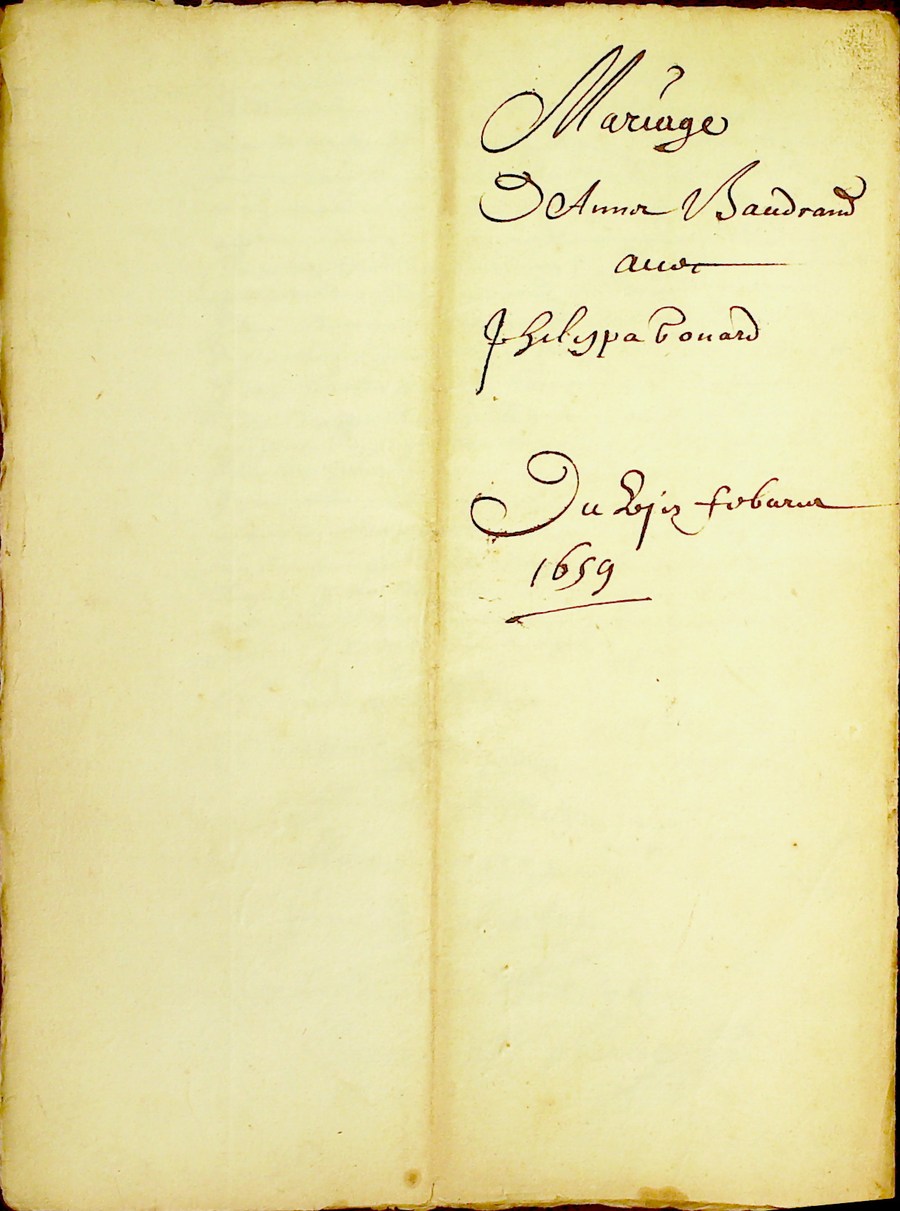 Mariage
D Anne Baudrand
avec
Philippe Bouard
Du febvrier
1659